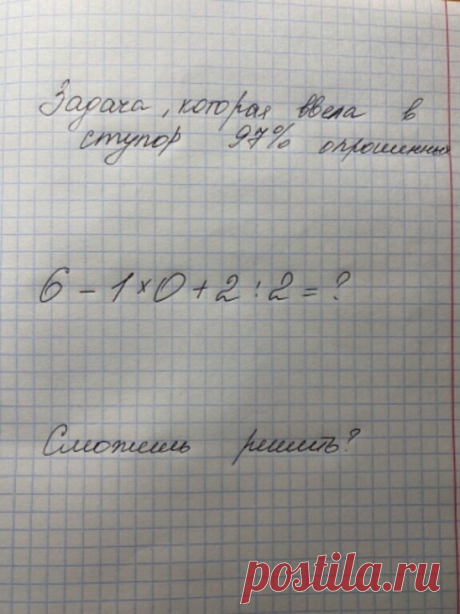 Задача, которая ввела в
ступор 97% опрошенных
6 - 1 × 0 + 2 : 2 = ?
Сможешь решить?
postila.ru